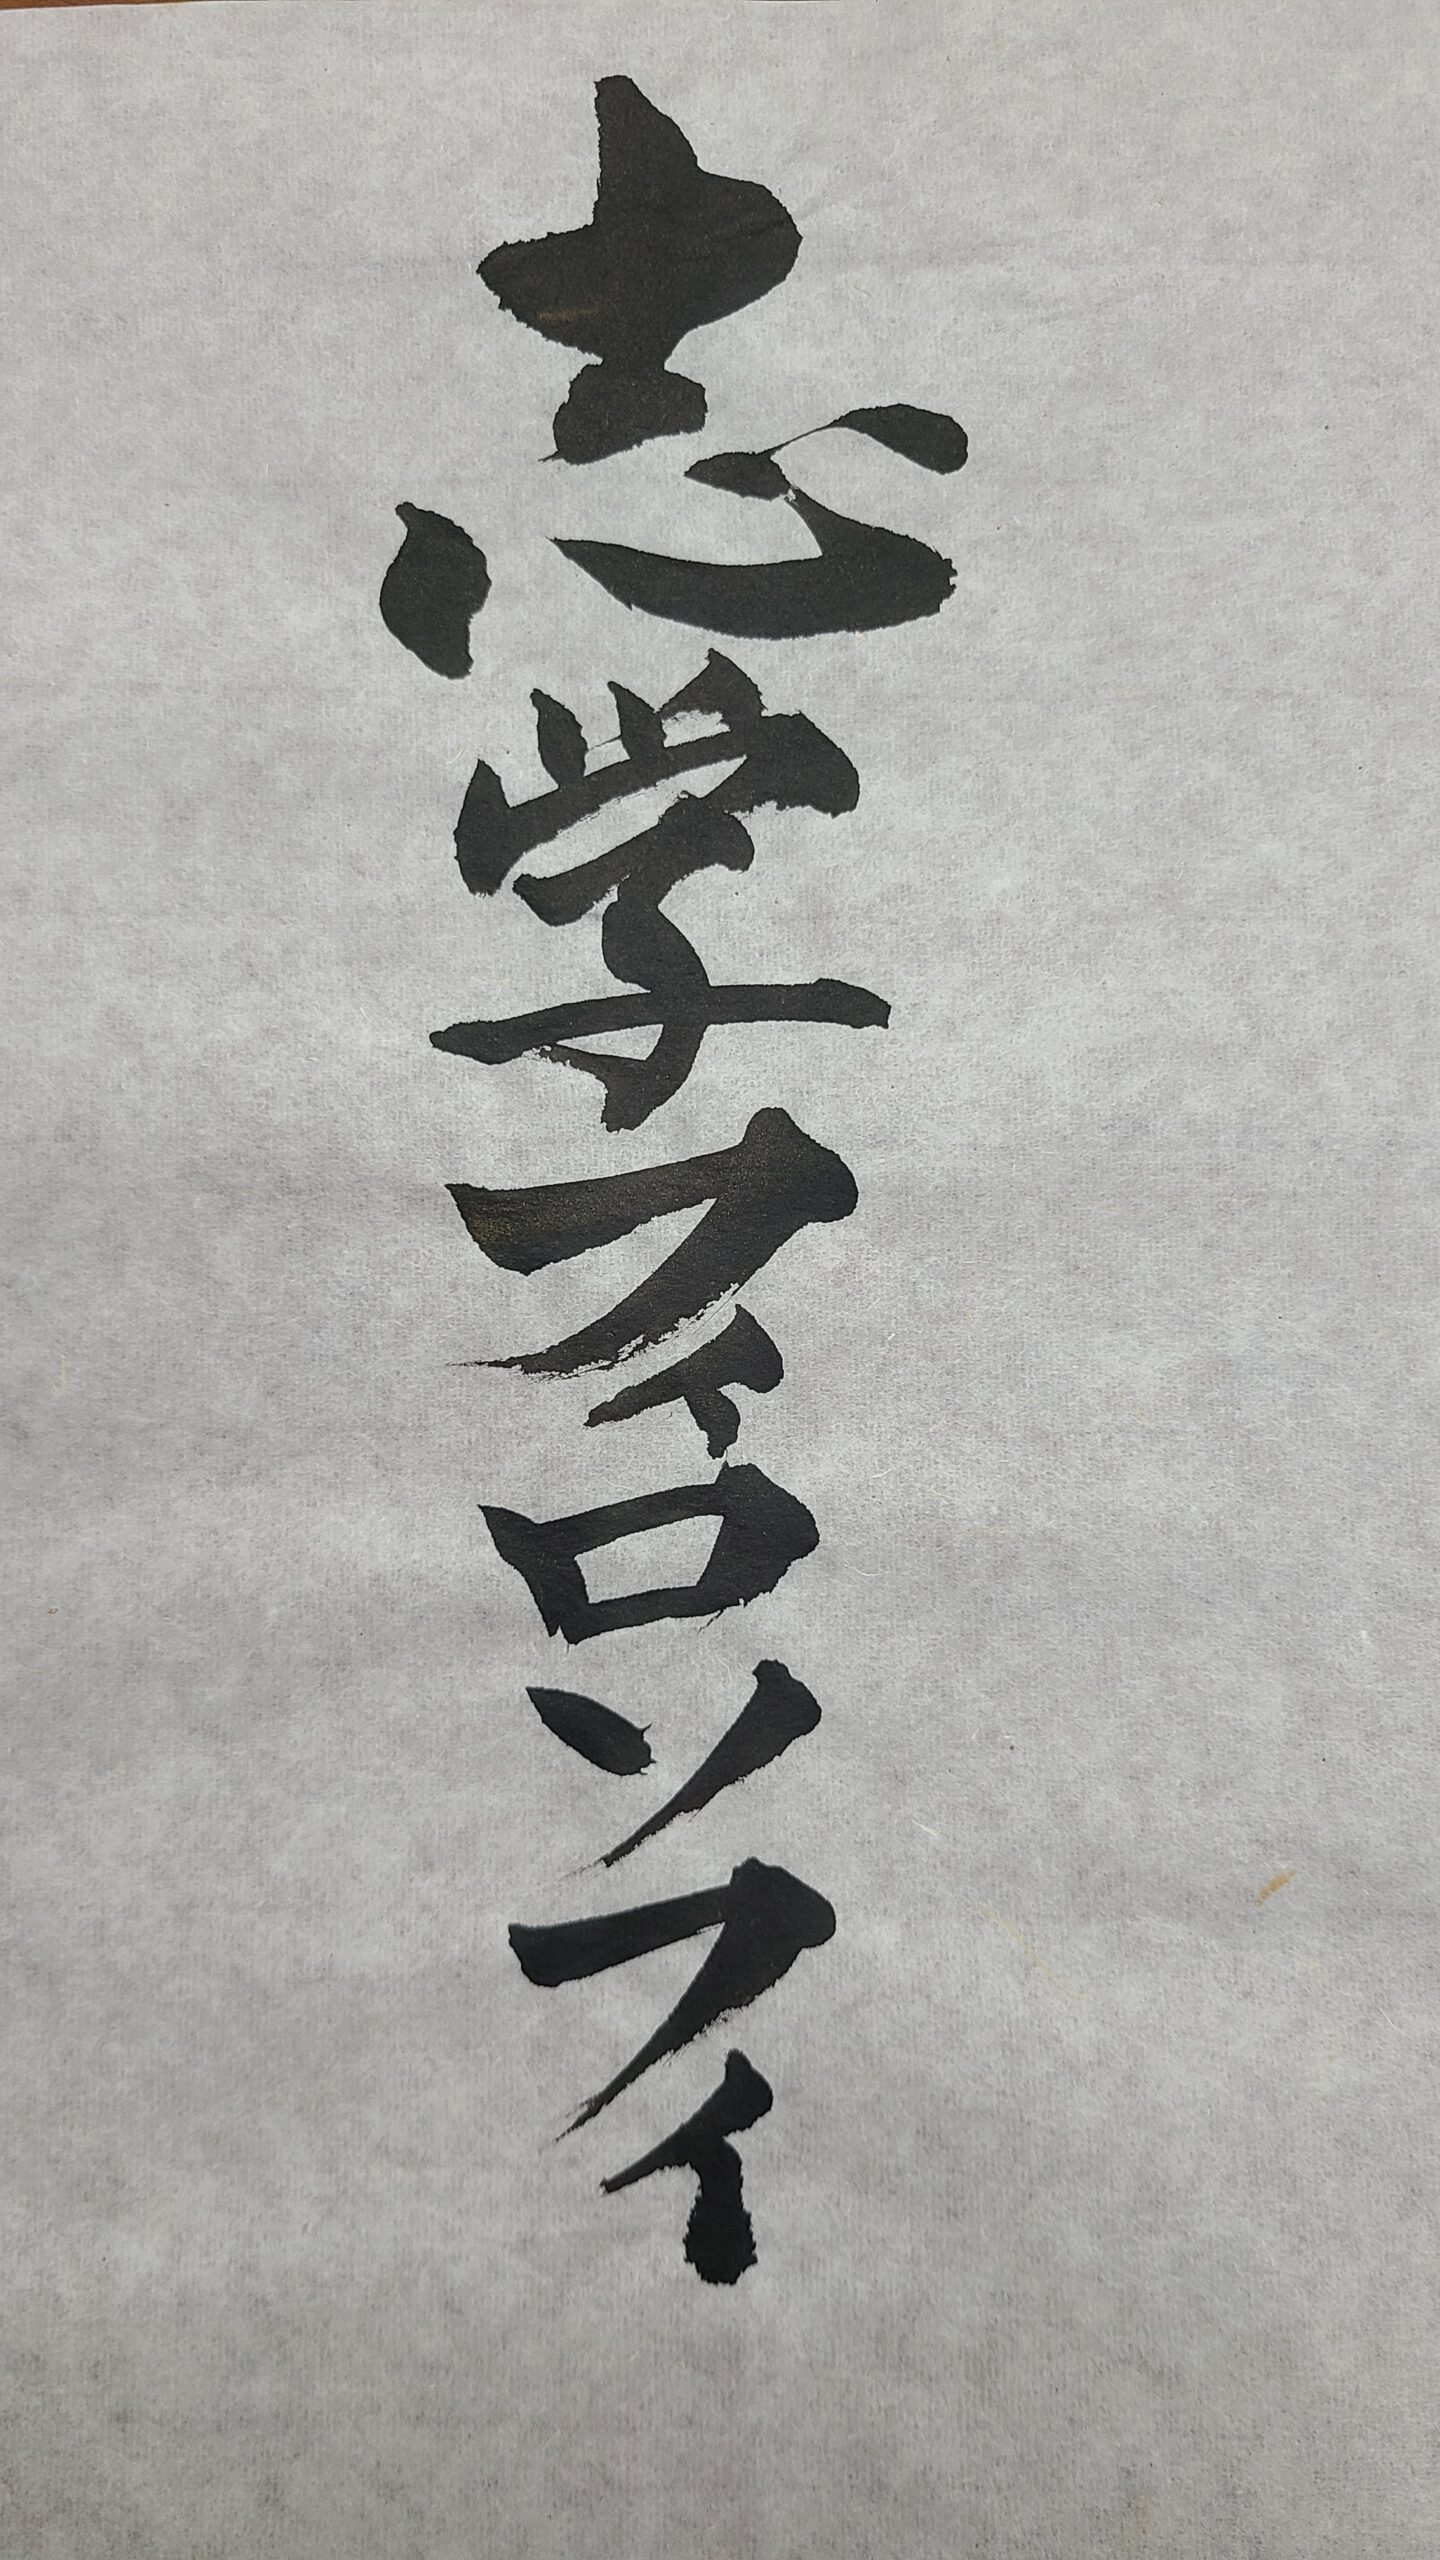 志学フィロソフィ